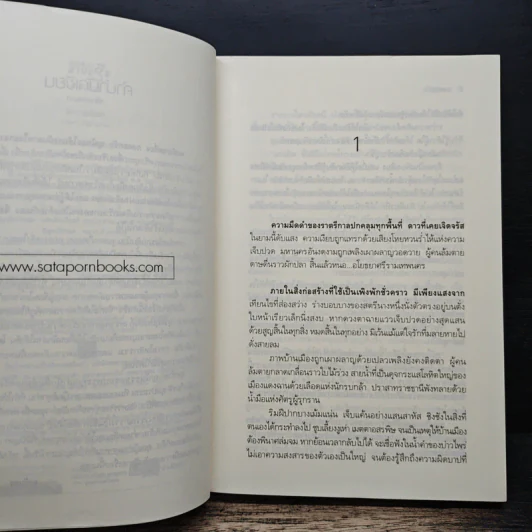 คำนำนักเขียน
www.satapornbooks.com
1
ความมืดดำของราตรีกาลปกคลุมทุกพื้นที่ ดาวที่เคยเจิดจรัส
ในยามนี้ดับแสง ความเงียบถูกแทรกด้วยเสียงโหยหวนร่ำไห้แห่งความ
เจ็บปวด มหานครอันงดงามถูกเพลิงเผาผลาญวอดวาย ผู้คนล้มตาย
ดาษดื่นราวผักปลา สิ้นแล้วหนอ...อโยธยาศรีรามเทพนคร
ภายในสิ่งก่อสร้างที่ใช้เป็นเพิงพักชั่วคราว มีเพียงแสงจาก
เทียนไขที่ส่องสว่าง ร่างบอบบางของสตรีนางหนึ่งนั่งตัวตรงอยู่บนตั่ง
ใบหน้าเรียวเล็กนิ่งสงบ หากดวงตาฉายแววเจ็บปวดอย่างสุดแสน
ด้วยสูญสิ้นในทุกสิ่ง หมดสิ้นในทุกอย่าง มิเว้นแม้แต่ใจรักที่มลายหายไป
ดั่งสายลม
ภาพบ้านเมืองถูกเผาผลาญด้วยเปลวเพลิงยังคงติดตา ผู้คน
ล้มตายกลาดเกลื่อนราวใบไม้ร่วง สายน้ำที่เป็นดุจกระแสโลหิตใหญ่ของ
เมืองแดงฉานด้วยเลือดแห่งนักรบกล้า ปราสาทราชฐานีพังทลายด้วย
น้ำมือแห่งศัตรูผู้รุกราน
ริมฝีปากบางเม้มแน่น เจ็บแค้นอย่างแสนสาหัส ชิงชังในสิ่งที่
ตนเองได้กระทำลงไป ชุบเลี้ยงงูเห่า เมตตาอสรพิษ จนเป็นเหตุให้บ้านเมือง
ต้องพินาศล่มจม หากย้อนเวลากลับไปได้ จะเชื่อฟังในน้ำคำของบ่าวไพร่
ไม่เอาความสงสารของตัวเองเป็นใหญ่ จนต้องรู้สึกถึงความผิดบาปที่